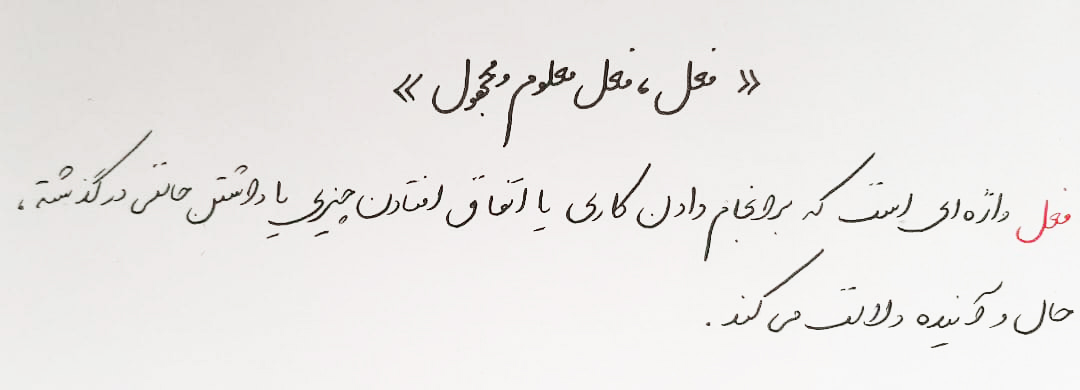 « فعل ، فعل معلوم و مجهول »
فعل واژه‌ای است که بر انجام دادن کاری یا اتفاق افتادن چیزی یا داشتن حالتی در گذشته ،
حال و آینده دلالت می‌کند .